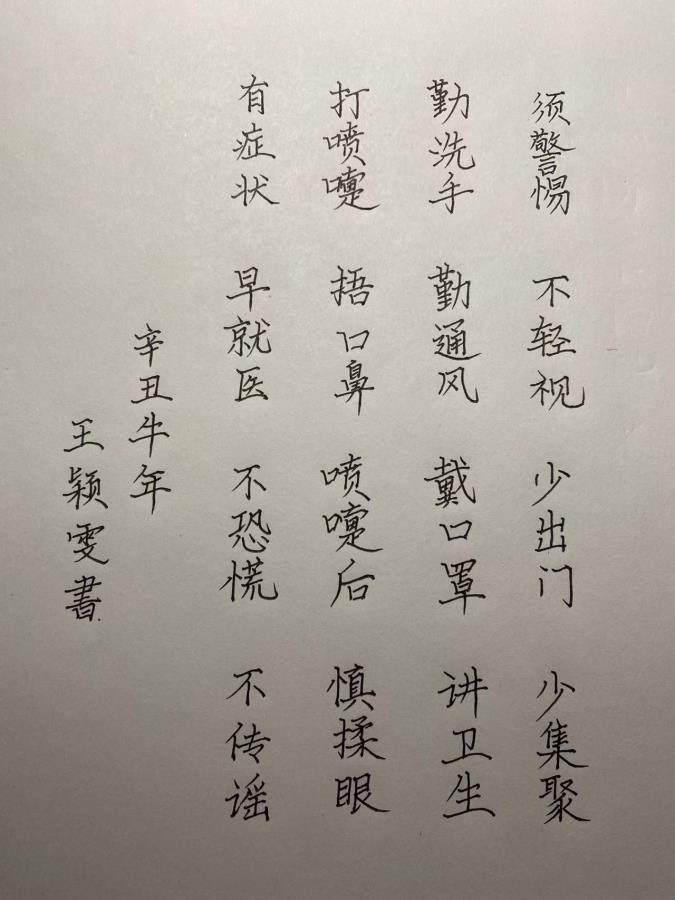 须警惕 不轻视 少出门 少集聚
勤洗手 勤通风 戴口罩 讲卫生
打喷嚏 捂口鼻 喷嚏后 慎揉眼
有症状 早就医 不恐慌 不传谣
辛丑牛年
王颖雯書